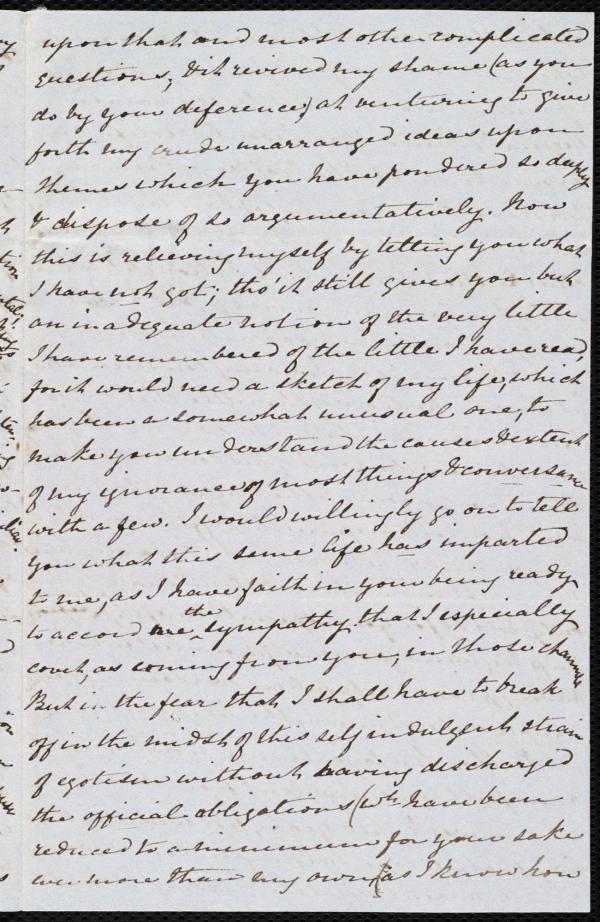 upon that and most other complicated
questions, & it revived my shame (as you
do by your deference) at venturing to give
forth my crude unarranged ideas upon
themes which you have pondered so deeply
& dispose of so argumentatively. Now
this is relieving myself by telling you what
I have not got; tho' it still gives you but
an inadequate notion of the very little
I have remembered of the little I have read,
for it would need a sketch of my life, which
has been a somewhat unusual one, to
make you understand the causes & extent
of my ignorance of most things & conversance
with a few. I would willingly go on to tell
you what this same life has imparted
to me, as I have faith in your being ready
to accord me the sympathy that I especially
covet, as coming from you, in those channels
But in the fear that I shall have to break
off in the midst of this self indulgent strain
of egotism without having discharged
the official obligations (wh have been
reduced to a minimum for your sake
even more than my own (as I know how